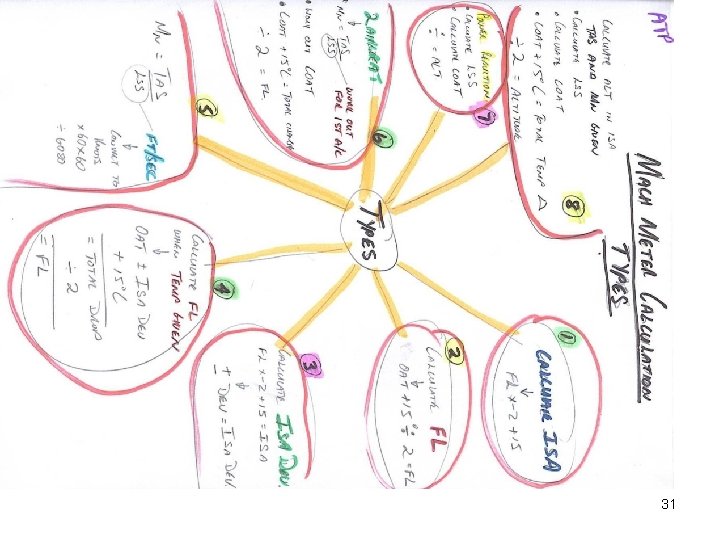 ATP
MACH METER CALCULATION
TYPES
TYPES
1
CALCULATE ISA
FL x -2 + 15
2
CALCULATE FL
OAT + 15° ÷ 2 = FL
3
CALCULATE ISA DEV
FL x -2 + 15 = ISA
± DEV = ISA DEV
4
CALCULATE FL
WHEN TEMP GIVEN
OAT ± ISA DEV
+ 15°C
= TOTAL DROP
÷ 2
= FL
5
MN = TAS
LSS
FT/SEC
CONVERT TO
KNOTS
x60x60
÷ 6080
6
2 AIRCRAFT
• MN = TAS
LSS
WORK OUT
FOR 1ST A/C
• WORK OUT COAT
• COAT + 15°C = TOTAL CHANGE
÷ 2 = FL.
7
POWER REDUCTION
• CALCULATE LSS
• CALCULATE COAT
÷ = ALT
8
CALCULATE ALT IN ISA
TAS AND MN GIVEN
• CALCULATE LSS
• CALCULATE COAT
• COAT + 15°C = TOTAL TEMP Δ
÷ 2 = ALTITUDE
31